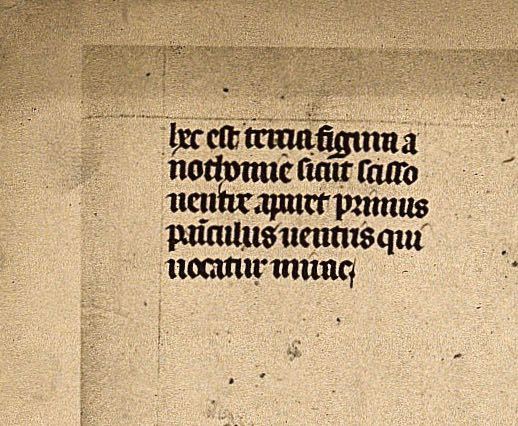 hec est tercia figura a
nothomie sicut scisso
uentre aparet primus
pāiculus uentris qui
uocatur mirac